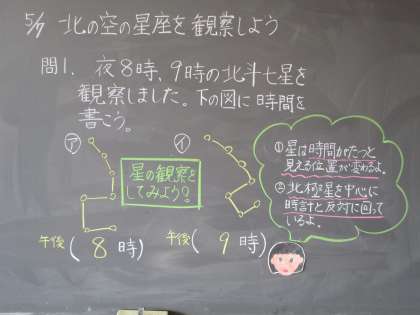 5/7 北の空の星座を観察しよう
問1. 夜8時、9時の北斗七星を
観察しました。下の図に時間を
書こう。
ア
イ
星の観察を
してみよう?
①星は時間がたつと
見える位置が変わるよ。
②北極星を中心に
時計と反対に回って
いるよ。
午後(8時)
午後(9時)